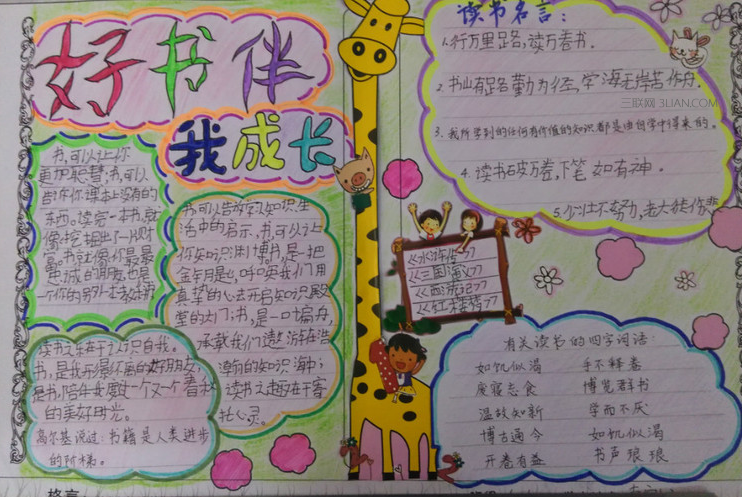 好书伴
我成长
书,可以让你
更加聪慧,书,可以
告诉你课本上没有的
东西。读完一本书,就
像挖掘出了一片财
富。书就像你最最
忠诚的朋友,也是
一个你的另外
读书之乐在于认识自我。
书,是我形影不离的好朋友,
是书,陪伴我度过一个又一个春秋
的美好时光。
高尔基说过:书籍是人类进步
的阶梯。
书可以告诉我知识,生
活中的启示,书可以让
你知识渊博,书,是一把
金钥匙,呼唤我们用
真挚的心去开启知识殿
堂的大门;书,是一叶扁舟,
承载我们遨游在浩
瀚的知识海中;
读书之趣在于寄
托心灵。
读书名言:
1.行万里路,读万卷书。
2.书山有路勤为径,学海无崖苦作舟。
3.我所学到的任何有价值的知识都是由自学中得来的。
4.读书破万卷,下笔如有神。
5.少壮不努力,老大徒伤悲
三联网 3LIAN.COM
《水浒传》
《三国演义》
《西游记》
《红楼梦》
有关读书的四字词语:
如饥似渴 手不释卷
废寝忘食 博览群书
温故知新 学而不厌
博古通今 如饥似渴
开卷有益 书声琅琅
格言